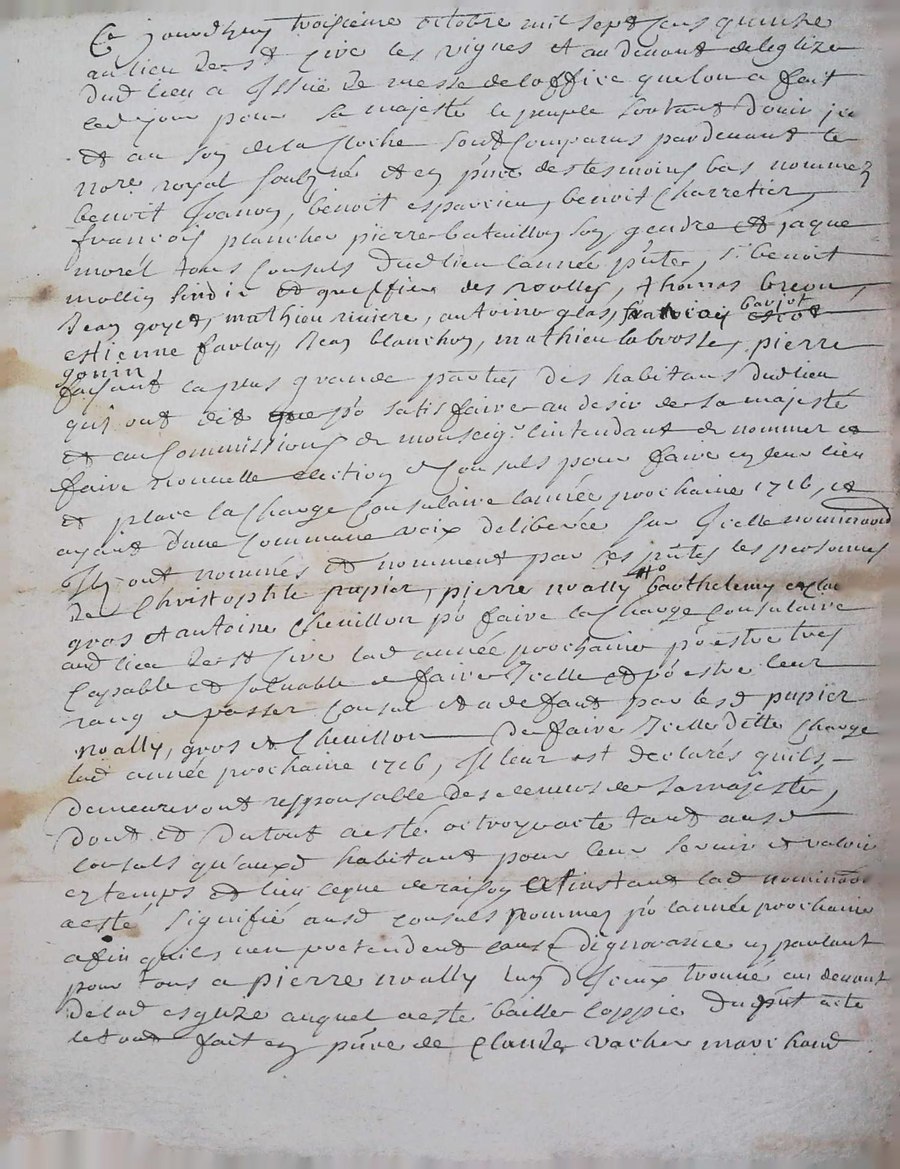 Ce jourdhuy troisieme octobre mil sept cens quinze
au lieu de st cire les vignes et au devant de leglize
dud lieu a Issüe de messe de loffice que lon a fait
led jour pour sa majesté le peuple sortant douir
et au son de la cloche sont comparus pardevant le
nore royal soubzné et en pnce des tesmoins bas nommez
benoit benoit esparcieu, benoit Charretier,
francois plancher pierre bataillon son gendre et jaque
morel tous Consuls dud lieu lannée pnte, sr benoit
mollin sindic et greffier des rolles, thomas breou,
Jean goyet, mathieu riviere, antoine glas, baujot
estienne favlay, Jean blanchon, mathieu labrosse, pierre
gonin
faisant la plus grande parties des habitans dudlieu
quj ont dit que po satisfaire au desir de sa majesté
et au Commissions de monseigr lintendant de nommer et
faire nouvelle election de Consuls pour faire en leur lieu
et place la Charge Consulaire lannée prochaine 1716, et
ayant dune Commune voix deliberée sur Icelle nominaon
Ilz ont nommés et nomment par ces pntes les personnes
de Christophle pupier, pierre noally barthelemy
gros et antoine Chevillon po faire la Charge Consulaire
aud lieu de st sire lad année prochaine po estre tres
Capable et solvable de faire Icelle et po estre leur
rang de passer Consul et a deffaut par lesd pupier
noally, gros et Chevillon de faire Icelle ditte Charge
lad année prochaine 1716, Il leur est declarés quils
demeureront responsable des deniers de sa majesté,
dont et du tout a esté octroyé acte tant ausd
Consuls qu'auxd habitant pour leur servir et valoir
en temps et lieu ce que de raison et a linstant lad nominaon
a esté signifié ausd consuls nommez po lannée prochaine
afin quils nen pretendent cause dignorance en parlant
pour tous a pierre noally lun diceux trouvé au devant
de lad esglize auquel a esté bailler coppie du pnt acte
le tout fait en pnce de Claude vacher marchand